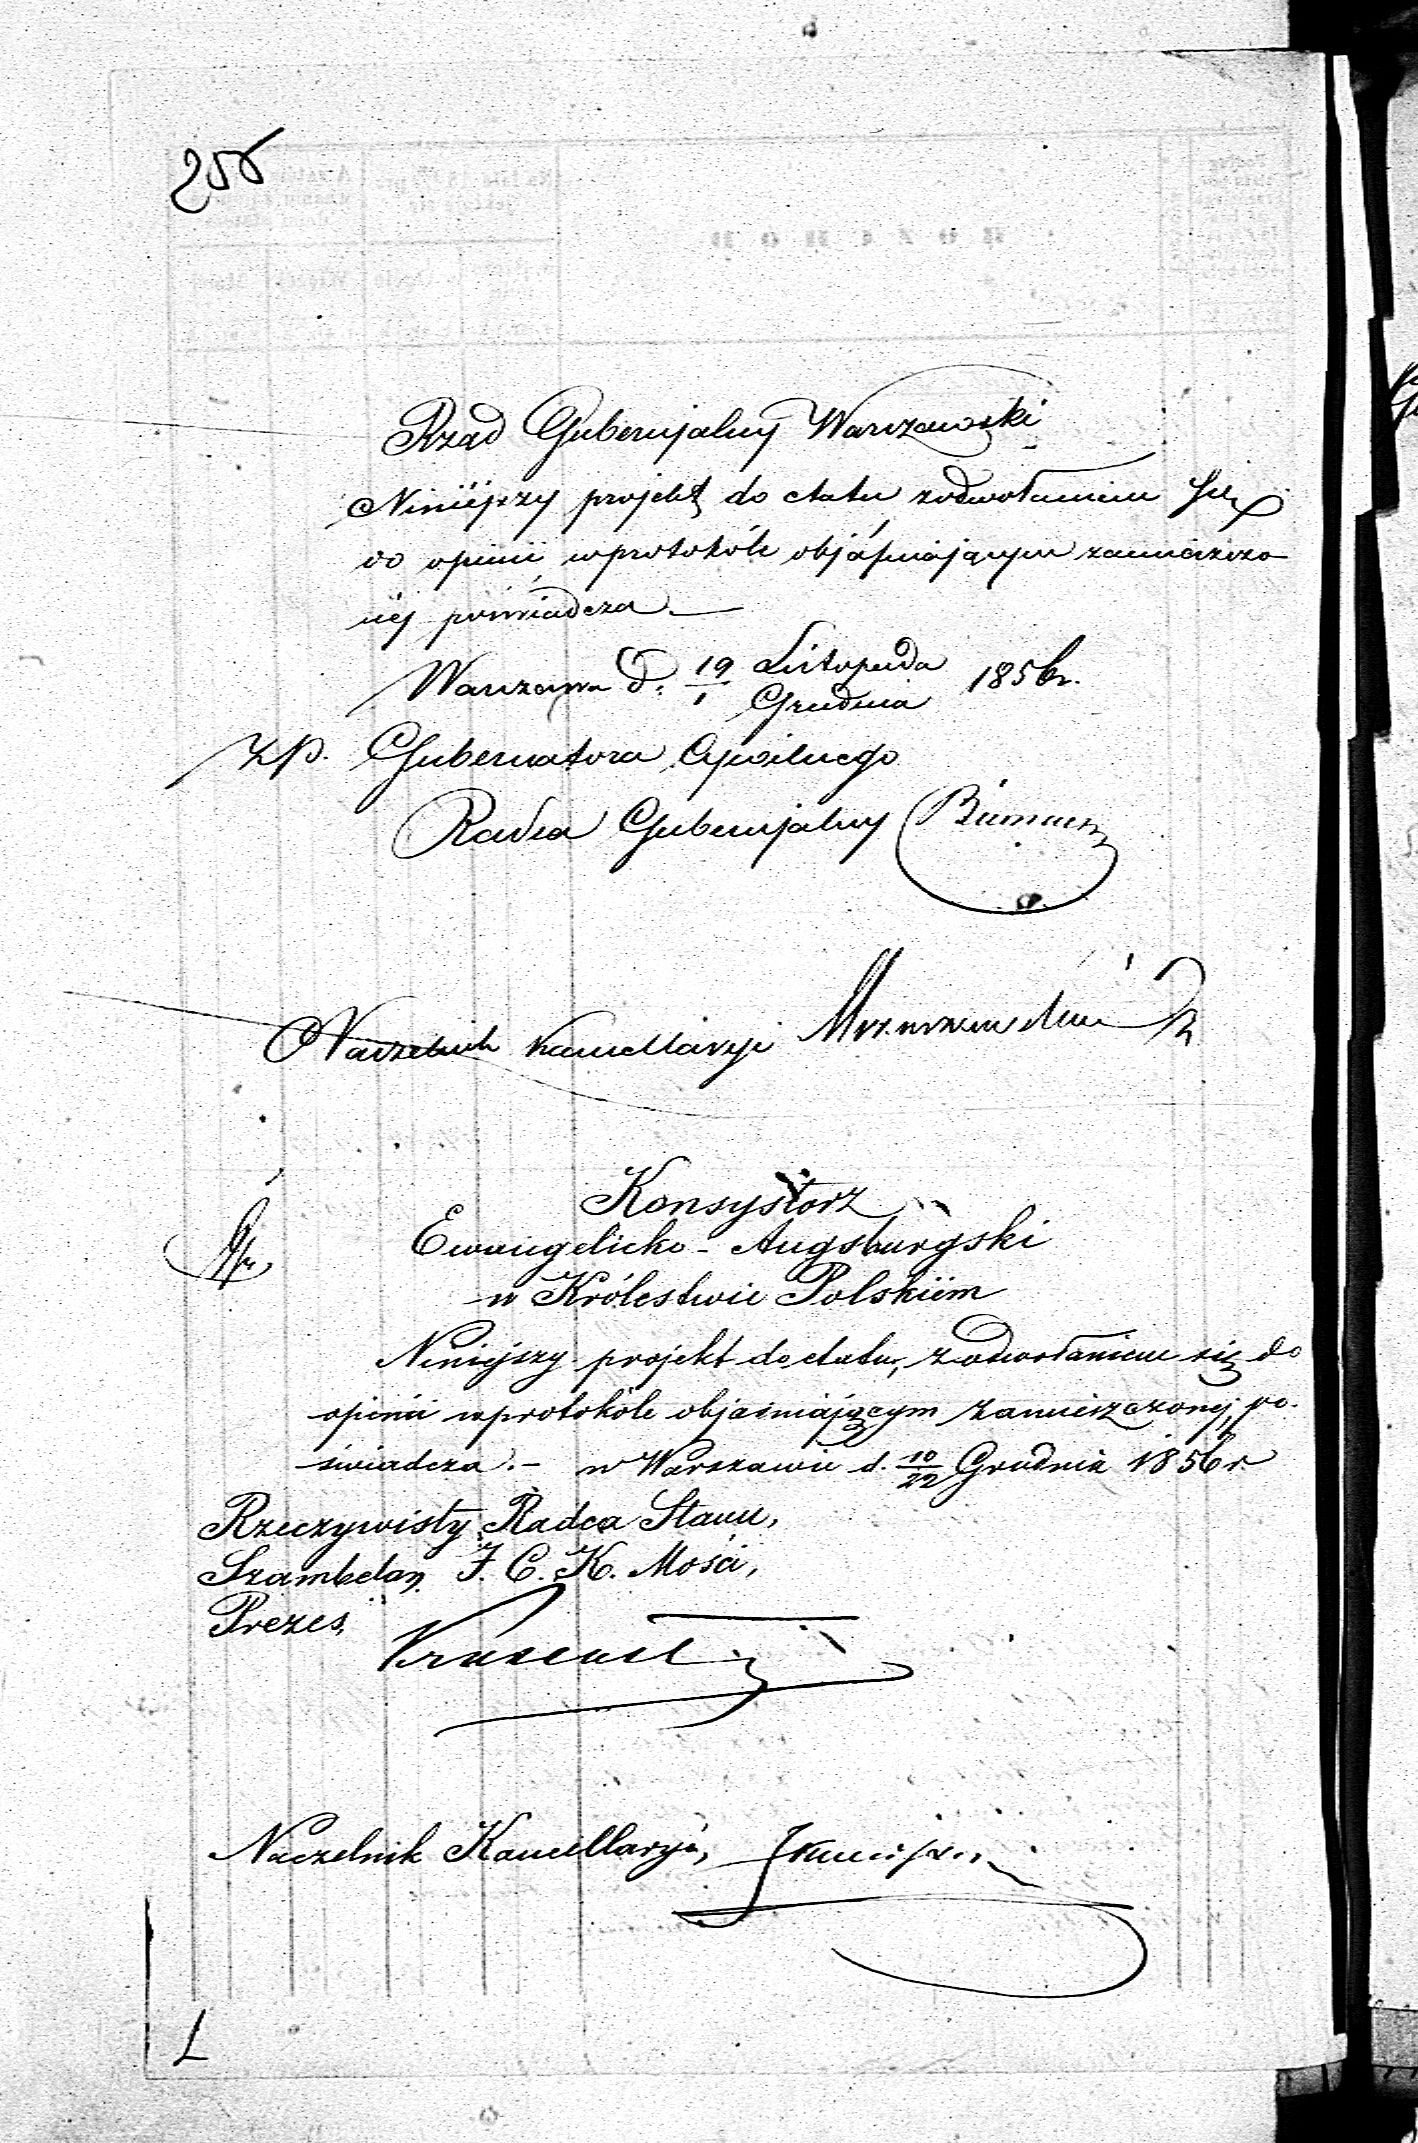 Rząd Gubernjalny Warszawski
Niniéjszy projekt do etatu z odwołaniem się
do opinii w protokóle objaśniającym zamieszczo
néj poświadcza.—
Warszawa d. 19/1 Listopada/Grudnia 1856 r.
z p. Gubernatora Cywilnego
Radca Gubernjalny
Naczelnik Kancellaryi
Konsystorz
Ewangelicko-Augsburgski
w Królestwie Polskiém
Niniejszy projekt do etatu, z odwołaniem się do
opinii w protokóle objaśniającym zamieszczonej, po-
świadcza.- w Warszawie d. 10/22 Grudnia 1856 r
Rzeczywisty Radca Stanu,
Szambelan J. C. K. Mości,
Prezes,
Naczelnik Kancellaryi,